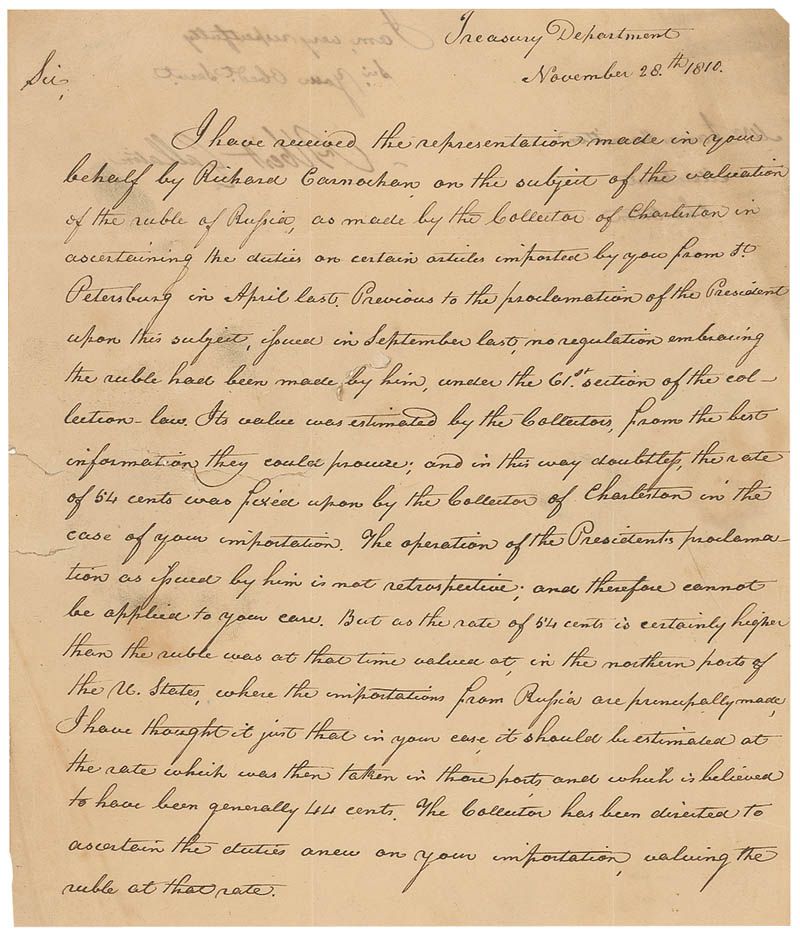 Treasury Department
November 28.th 1810.
Sir,
I have received the representation made in your
behalf by Richard Carnochan, on the subject of the valuation
of the ruble of Russia, as made by the Collector of Charleston in
ascertaining the duties on certain articles imported by you from St.
Petersburg in April last. Previous to the proclamation of the President
upon this subject, issued in September last, no regulation embracing
the ruble had been made by him, under the 61st. section of the col-
lection-law. Its value was estimated by the Collectors, from the best
information they could procure; and in this way doubtless, the rate
of 54 cents was fixed upon by the Collector of Charleston in the
case of your importation. The operation of the President's proclama-
tion as issued by him is not retrospective; and therefore cannot
be applied to your case. But as the rate of 54 cents is certainly higher
than the ruble was at that time valued at, in the northern ports of
the U. States, where the importations from Russia are principally made,
I have thought it just that in your case, it should be estimated at
the rate which was then taken in those ports, and which is believed
to have been generally 44 cents. The Collector has been directed to
ascertain the duties anew on your importation, valuing the
ruble at that rate.
I am, very respectfully
Sir, Your Obedt. Servt.
Albert Gallatin